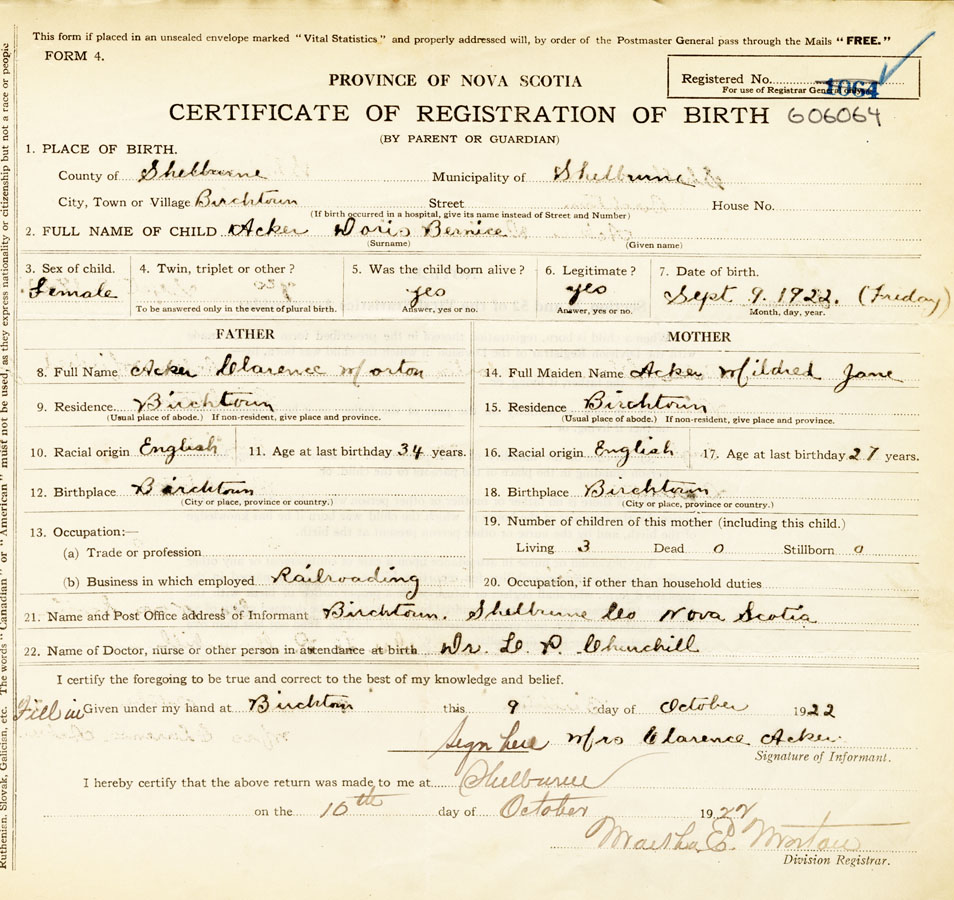 This form if placed in an unsealed envelope marked "Vital Statistics" and properly addressed will, by order of the Postmaster General pass through the Mails "FREE."
FORM 4.
PROVINCE OF NOVA SCOTIA
Registered No. 1064
For use of Registrar General only.
CERTIFICATE OF REGISTRATION OF BIRTH 606064
(BY PARENT OR GUARDIAN)
1. PLACE OF BIRTH.
County of Shelburne Municipality of Shelburne
City, Town or Village Birchtown Street House No.
(If birth occurred in a hospital, give its name instead of Street and Number)
2. FULL NAME OF CHILD Acker Doris Bernice
(Surname) (Given name)
3. Sex of child. 4. Twin, triplet or other? 5. Was the child born alive? 6. Legitimate? 7. Date of birth.
Female yes yes Sept 9. 1922. (Friday)
To be answered only in the event of plural birth. Answer, yes or no. Answer, yes or no. Month, day, year.
FATHER MOTHER
8. Full Name Acker Clarence Morton 14. Full Maiden Name Acker Mildred Jane
9. Residence Birchtown 15. Residence Birchtown
(Usual place of abode.) If non-resident, give place and province. (Usual place of abode.) If non-resident, give place and province.
10. Racial origin English 11. Age at last birthday 34 years. 16. Racial origin English 17. Age at last birthday 27 years.
12. Birthplace Birchtown 18. Birthplace Birchtown
(City or place, province or country.) (City or place, province or country.)
13. Occupation:— 19. Number of children of this mother (including this child.)
(a) Trade or profession Living 3 Dead 0 Stillborn 0
(b) Business in which employed Railroading 20. Occupation, if other than household duties
21. Name and Post Office address of Informant Birchtown. Shelburne Co Nova Scotia
22. Name of Doctor, nurse or other person in attendance at birth Dr. L. P. Churchill
I certify the foregoing to be true and correct to the best of my knowledge and belief.
Fill in Given under my hand at Birchtown this 9 day of October 1922
Sign here Mrs Clarence Acker.
Signature of Informant.
I hereby certify that the above return was made to me at Shelburne
on the 10th day of October 1922
Martha E. Morton
Division Registrar.
Ruthenian, Slovak, Galician, etc. The words "Canadian" or "American" must not be used, as they express nationality or citizenship but not a race or people